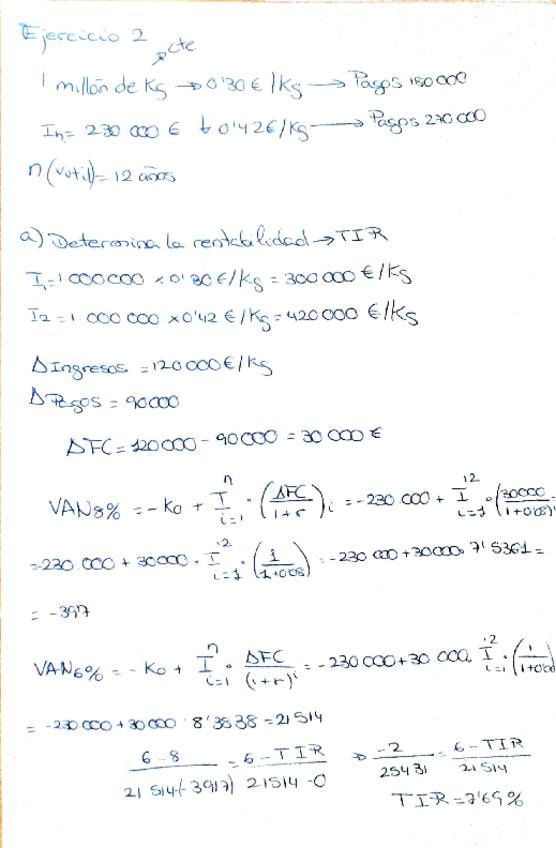 Ejercicio 2
cte
1 millón de Kg → 0'30 € /Kg → Pagos 180 000
In = 230 000 € 0'42 €/Kg → Pagos 270 000
n (vutil) = 12 años
a) Determina la rentabilidad → TIR
I1 = 1 000 000 x 0'30 €/Kg = 300 000 €/Kg
I2 = 1.000 000 x 0'42 €/Kg = 420 000 €/Kg
Δ Ingresos = 120 000 €/Kg
Δ Pagos = 90000
ΔFC = 120 000 - 90 000 = 30 000 €
VAN8% = - K0 + n I i=1 · (ΔFC / 1+r) i = -230.000 + 12 I i=1 · (30000 / 1+0'08)
= -230 000 + 30000 · 12 I i=1 · (1 / 1+0'08) = -230 000 + 30000 · 7'5361 =
= -3917
VAN6% = - K0 + n I i=1 · ΔFC / (1+r)^i = -230 000 + 30 000 · 12 I i=1 · (1 / 1+0'06
= -230 000 + 30 000 · 8'3838 = 21 514
6-8 / 21 514-(-3917) = 6-TIR / 21514-0 ⇒ -2 / 25431 = 6-TIR / 21 514
TIR = 7'69 %